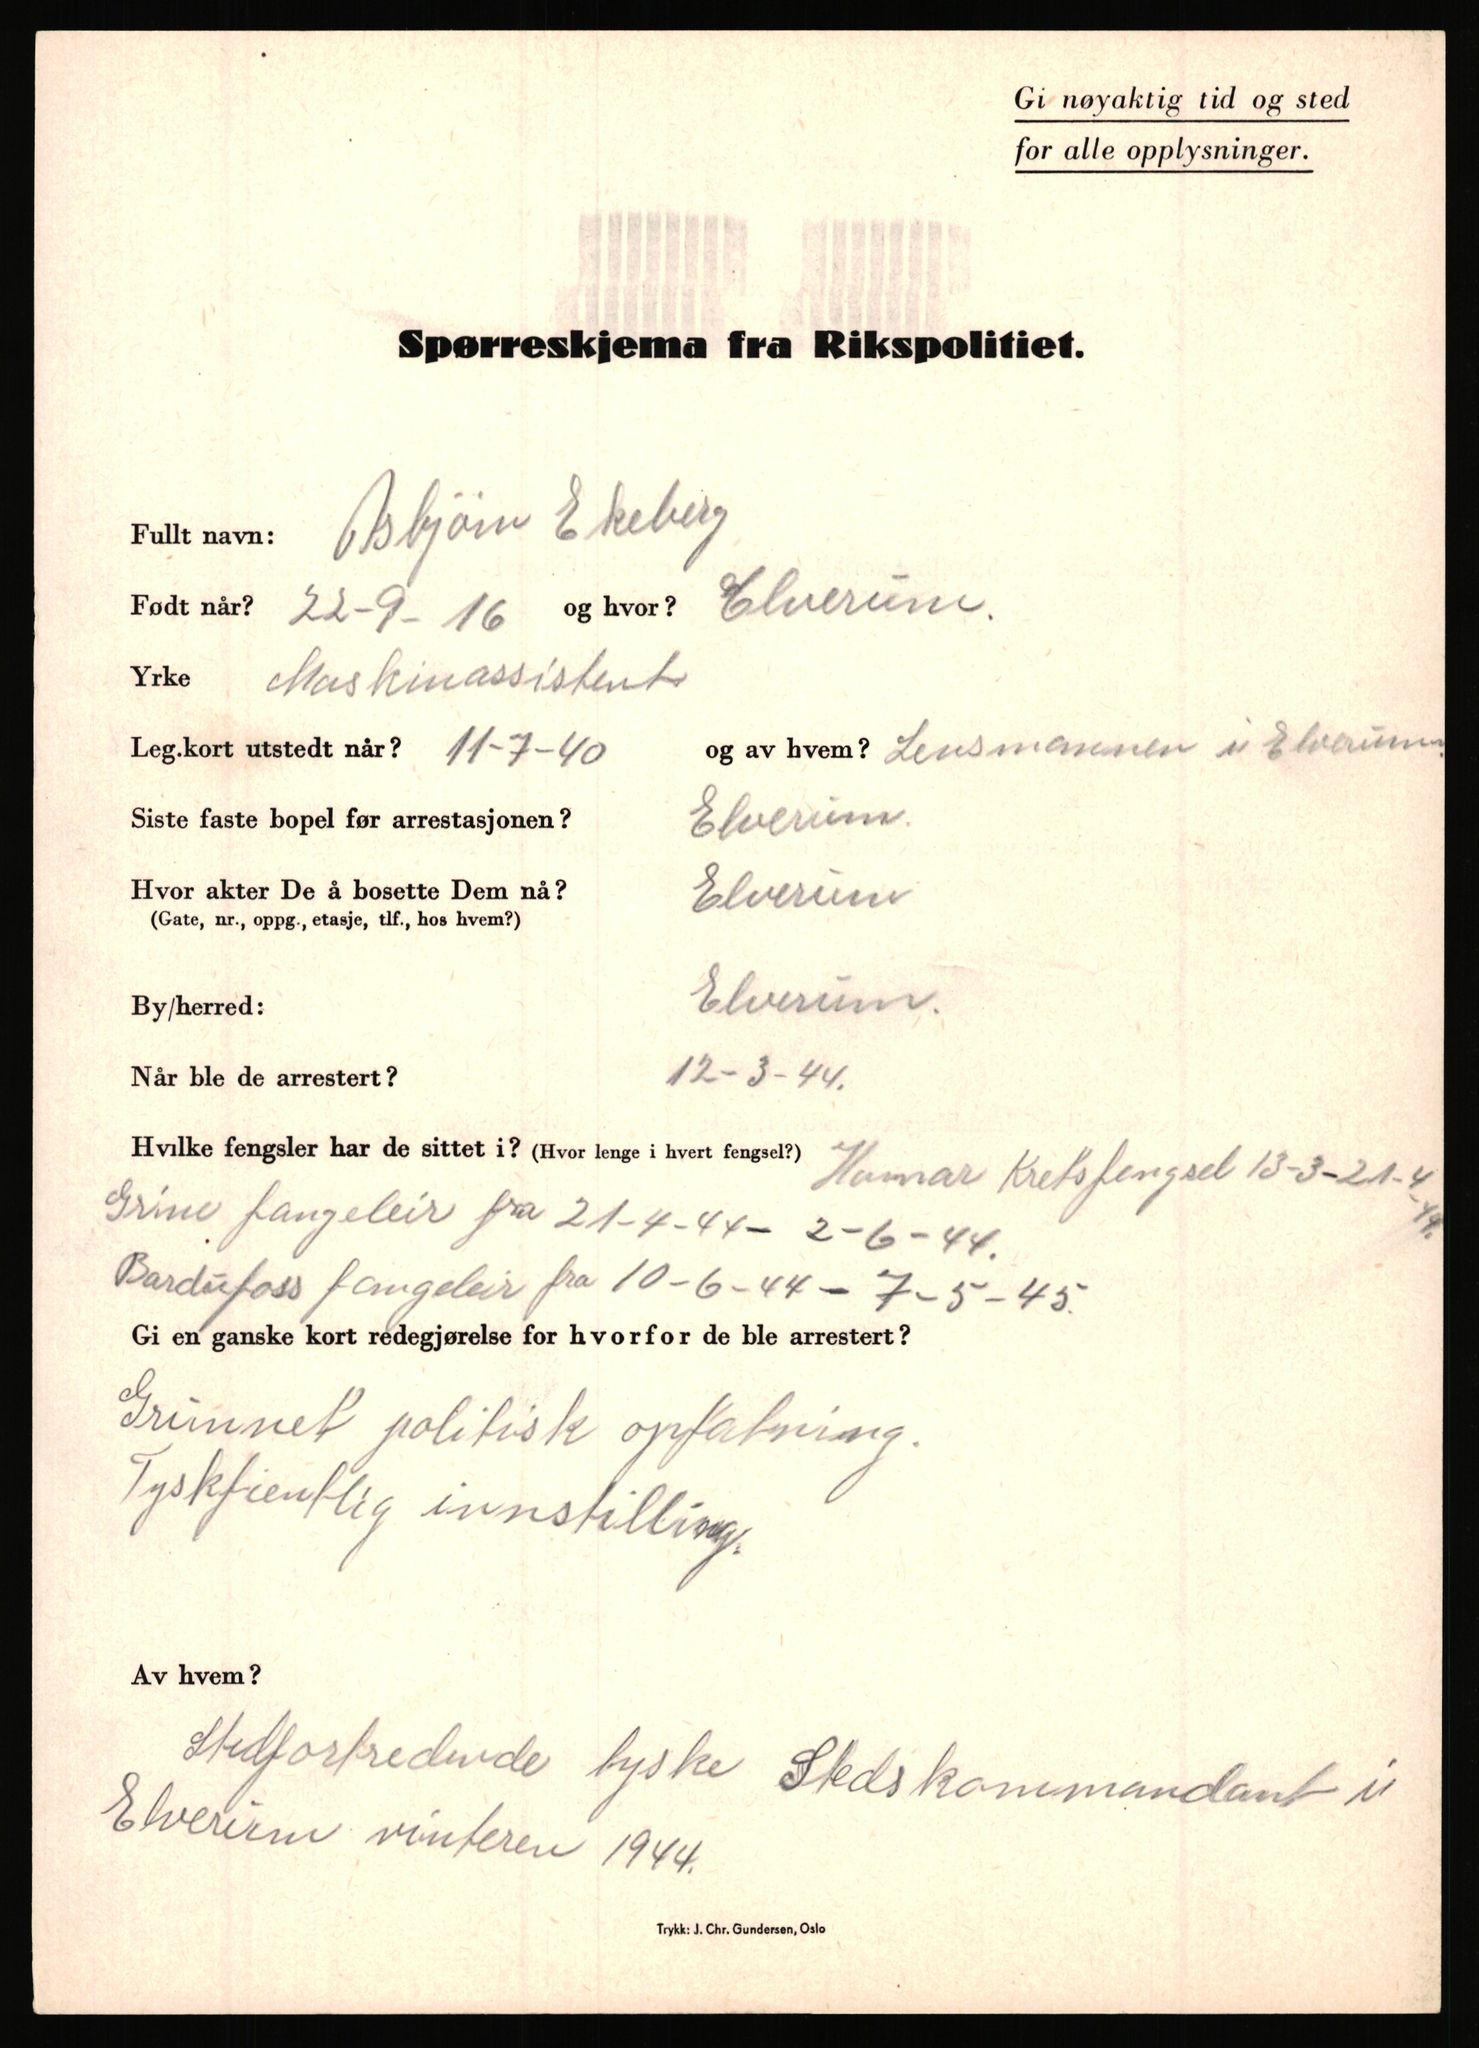 Gi nøyaktig tid og sted
for alle opplysninger.
Spørreskjema fra Rikspolitiet.
Fullt navn: Asbjörn Ekeberg
Født når? 22-9-16 og hvor? Elverum.
Yrke Maskinassistent
Leg.kort utstedt når? 11-7-40 og av hvem? Lensmannen i Elverum.
Siste faste bopel før arrestasjonen? Elverum.
Hvor akter De å bosette Dem nå? Elverum
(Gate, nr., oppg., etasje, tlf., hos hvem?)
By/herred: Elverum.
Når ble de arrestert? 12-3-44.
Hvilke fengsler har de sittet i? (Hvor lenge i hvert fengsel?) Hamar Kretsfengsel 13-3-21-4
-44.
Grini fangeleir fra 21-4-44- 2-6-44.
Bardufoss fangeleir fra 10-6-44-7-5-45.
Gi en ganske kort redegjørelse for hvorfor de ble arrestert?
Grunnet politisk opfatning.
Tyskfientlig innstilling.
Av hvem?
Stedfortredende tyske Stedskommandant i
Elverum vinteren 1944.
Trykk: J. Chr. Gundersen, Oslo